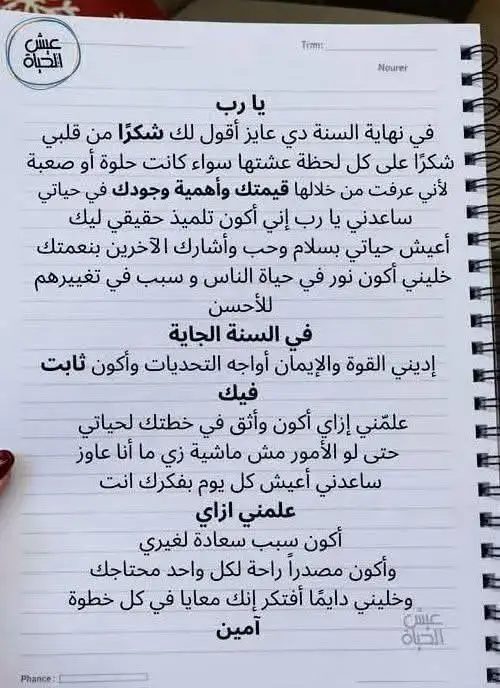 عيش
الحياة
Trm:
Nourer
يا رب
في نهاية السنة دي عايز أقول لك شكرًا من قلبي
شكرًا على كل لحظة عشتها سواء كانت حلوة أو صعبة
لأني عرفت من خلالها قيمتك وأهمية وجودك في حياتي
ساعدني يا رب إني أكون تلميذ حقيقي ليك
أعيش حياتي بسلام وحب وأشارك الآخرين بنعمتك
خليني أكون نور في حياة الناس و سبب في تغييرهم
للأحسن
في السنة الجاية
إديني القوة والإيمان أواجه التحديات وأكون ثابت
فيك
علمّني إزاي أكون وأثق في خطتك لحياتي
حتى لو الأمور مش ماشية زي ما أنا عاوز
ساعدني أعيش كل يوم بفكرك انت
علمني ازاي
أكون سبب سعادة لغيري
وأكون مصدراً راحة لكل واحد محتاجك
وخليني دايمًا أفتكر إنك معايا في كل خطوة
آمين
عيش
الحياة
Phance: